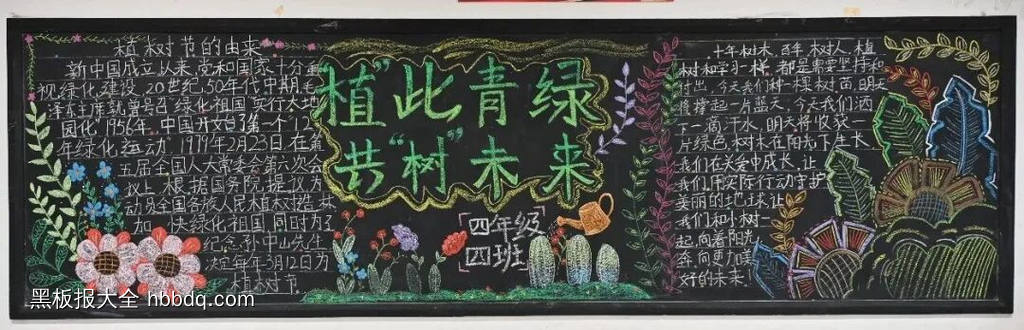 植树节的由来
新中国成立以来,党和国家十分重
视绿化建设,20世纪50年代中期,毛
泽东主席就曾号召"绿化祖国"实行大地
园化"1956年,中国开始了第一个"12
年绿化运动"1979年2月23日,在第
五届全国人大常委会第六次会
议上,根据国务院提议,为
动员全国各族人民植树造林
加快绿化祖国,同时为了
纪念孙中山先生
决定每年3月12日为
植树节
"植"此青绿
共"树"未来
四年级
四班
十年树木,百年树人,植
树和学习一样,都是需要坚持和
付出,今天我们种一棵树苗,明天
撑起一片蓝天,今天我们洒
下一滴汗水,明天将收获一
片绿色,树木在阳光下生长
我们在关爱中成长,让
我们用实际行动守护
美丽的地球,让
我们和小树一
起,向着阳光,
奔向更加美
好的未来
黑板报大全 hbbdq.com